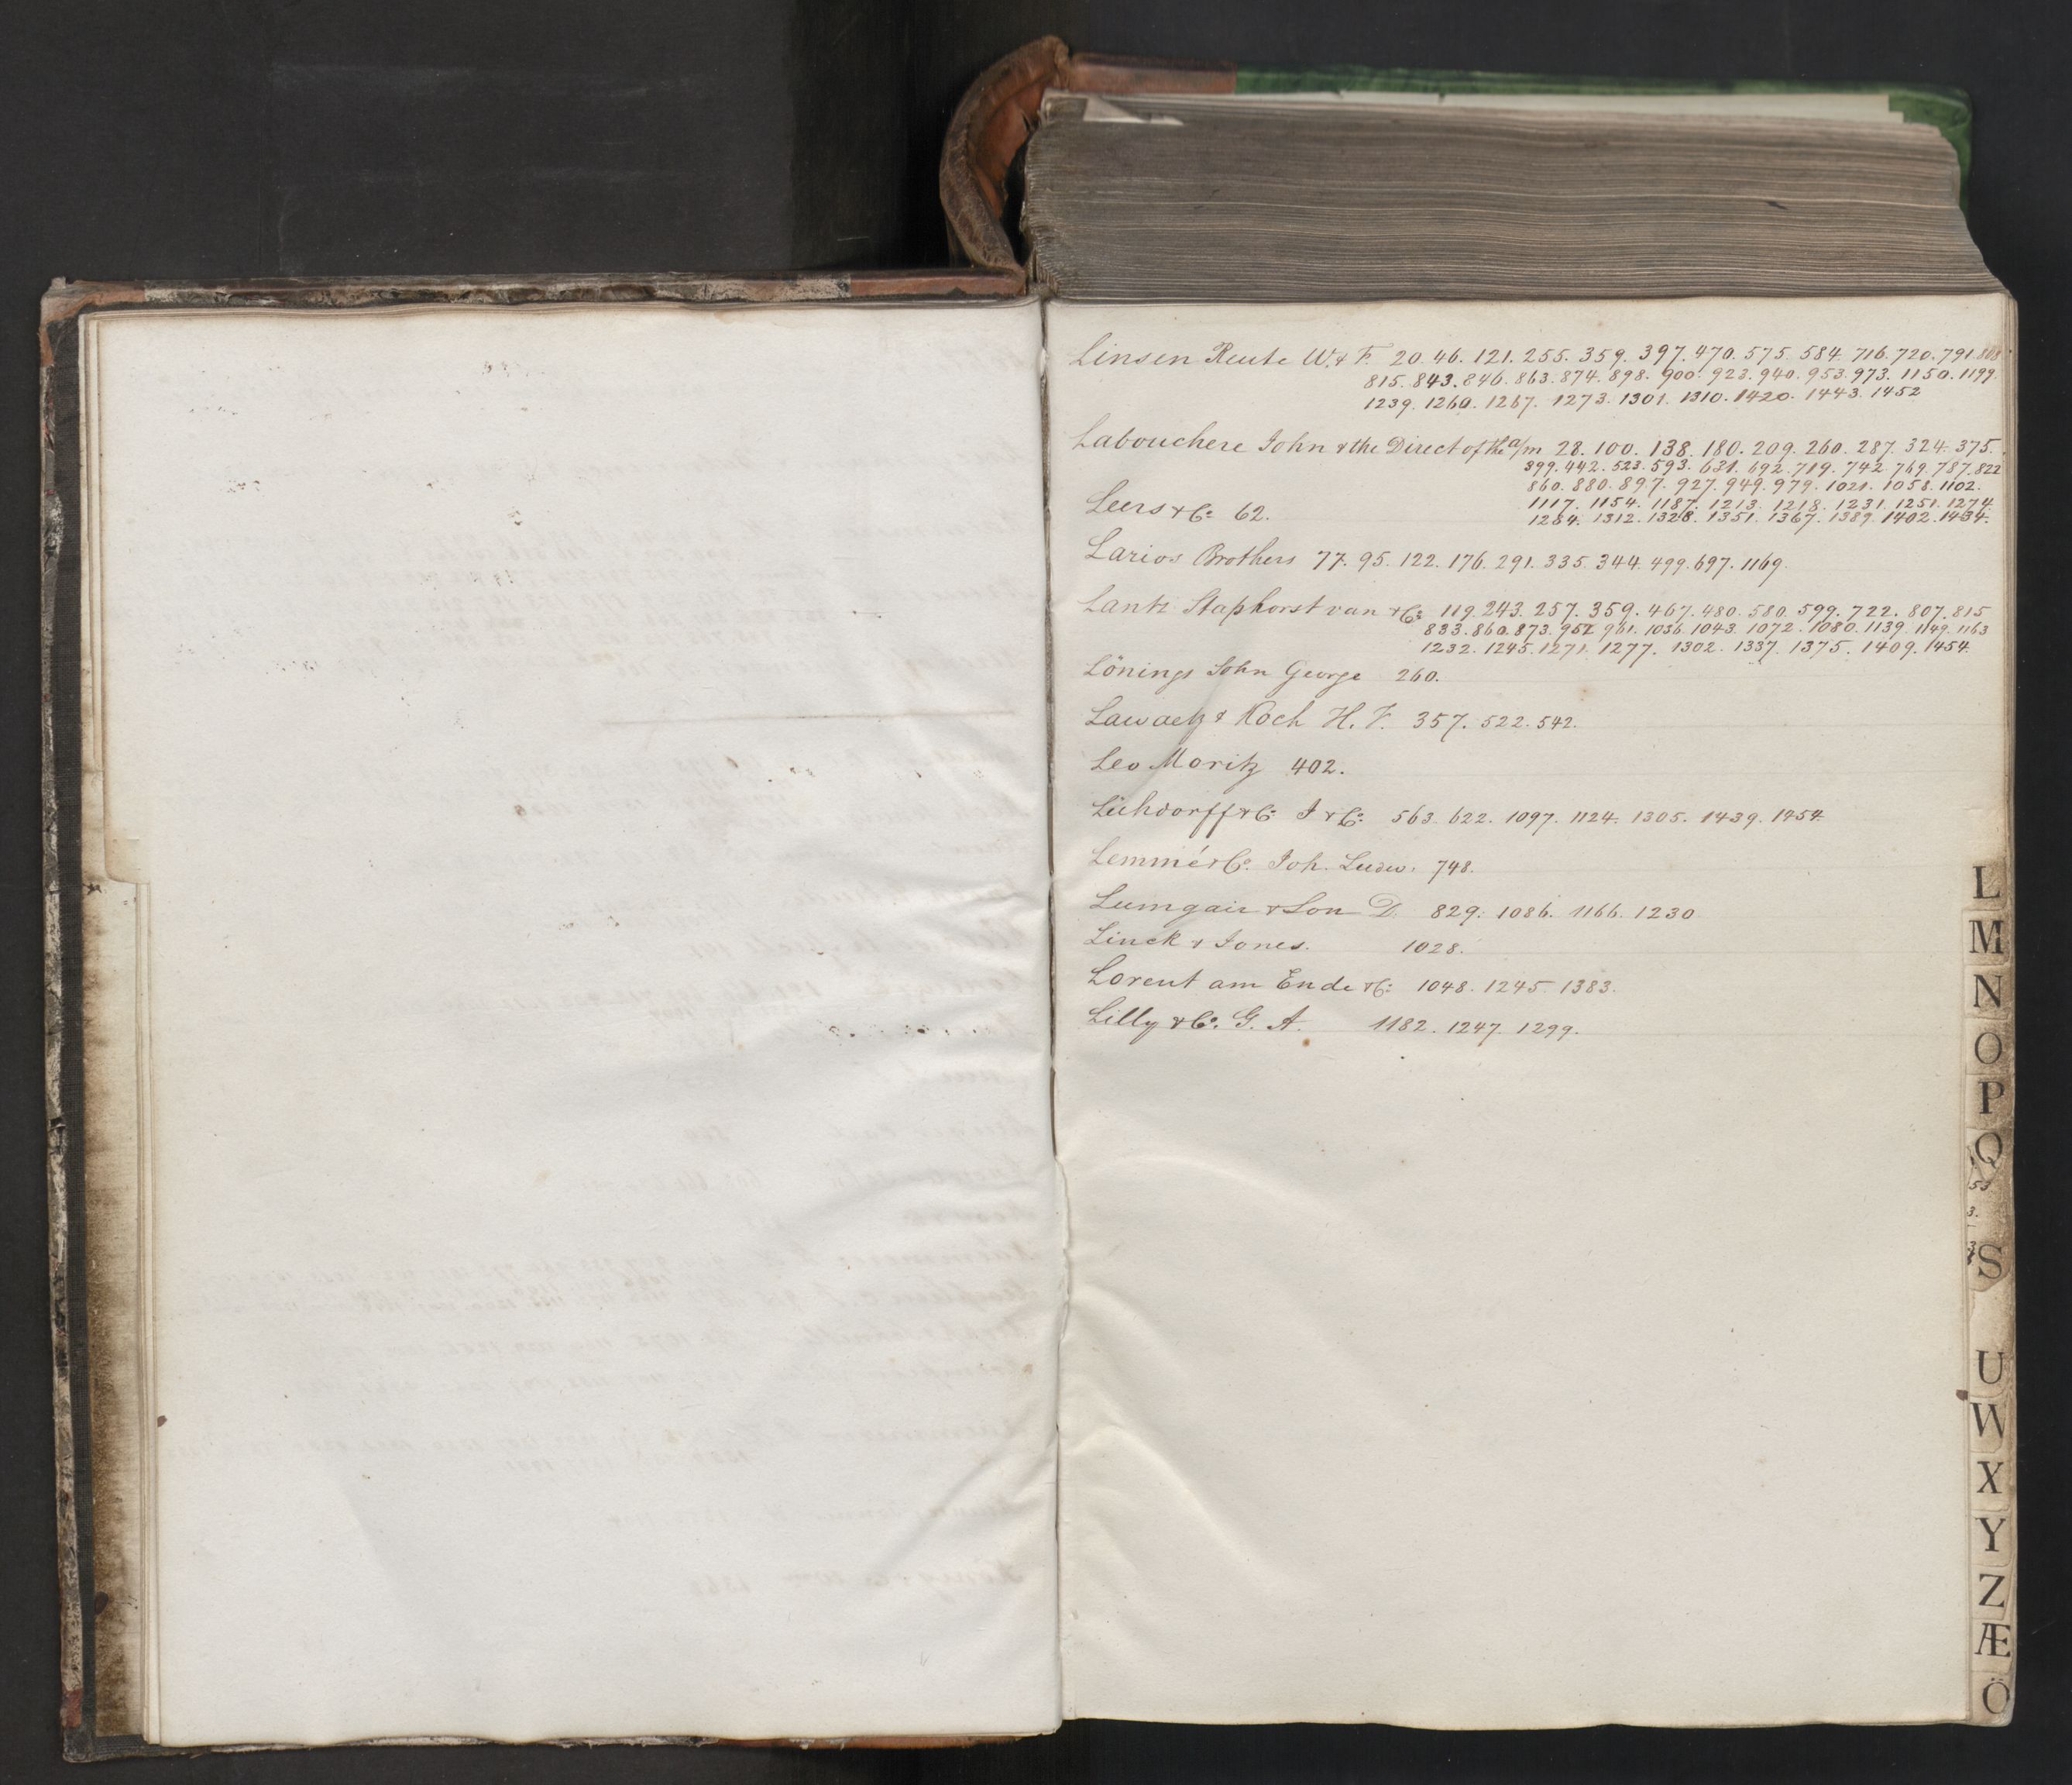 Linsen Reute W. & F. 20. 46. 121. 255. 359. 397. 470. 575. 584. 716. 720. 791. 808
815. 843. 846. 863. 874. 898. 900. 923. 940. 953. 973. 1150. 1199.
1239. 1260. 1267. 1273. 1301. 1310. 1420. 1443. 1452
Labouchere John & the Direct of the a/m 28. 100. 138. 180. 209. 260. 287. 324. 375.
399. 442. 523. 593. 631. 692. 719. 742. 769. 787. 822
860. 880. 897. 927. 949. 979. 1021. 1058. 1102.
1117. 1154. 1187. 1213. 1218. 1231. 1251. 1274.
Leers & Co: 62.
1284. 1312. 1328. 1351. 1367. 1389. 1402. 1434.
Larios Brothers 77. 95. 122. 176. 291. 335. 344. 499. 697. 1169.
Lantz Staphorst van & Co: 119. 243. 257. 359. 467. 480. 580. 599. 722. 807. 815
833. 860. 873. 952. 961. 1036. 1043. 1072. 1080. 1139. 1149. 1163
1232. 1245. 1271. 1277. 1302. 1337. 1375. 1409. 1454.
Lönings John George 260.
Lawaetz & Koch H. F. 357. 522. 542.
Leo Moritz 402.
Lühdorff & Co: J & Co: 563. 622. 1097. 1124. 1305. 1439. 1454.
Lemmé & Co. Joh. Ludw. 748.
Lumgair & Son D. 829. 1086. 1166. 1230
Linck & Jones. 1028.
Lorent am Ende & Co: 1048. 1245. 1383.
Lilly & Co. G. A. 1182. 1247. 1299.
L
M
N
O
P
Q
53
3.
S
U
W
X
Y
Z
Æ
Ö